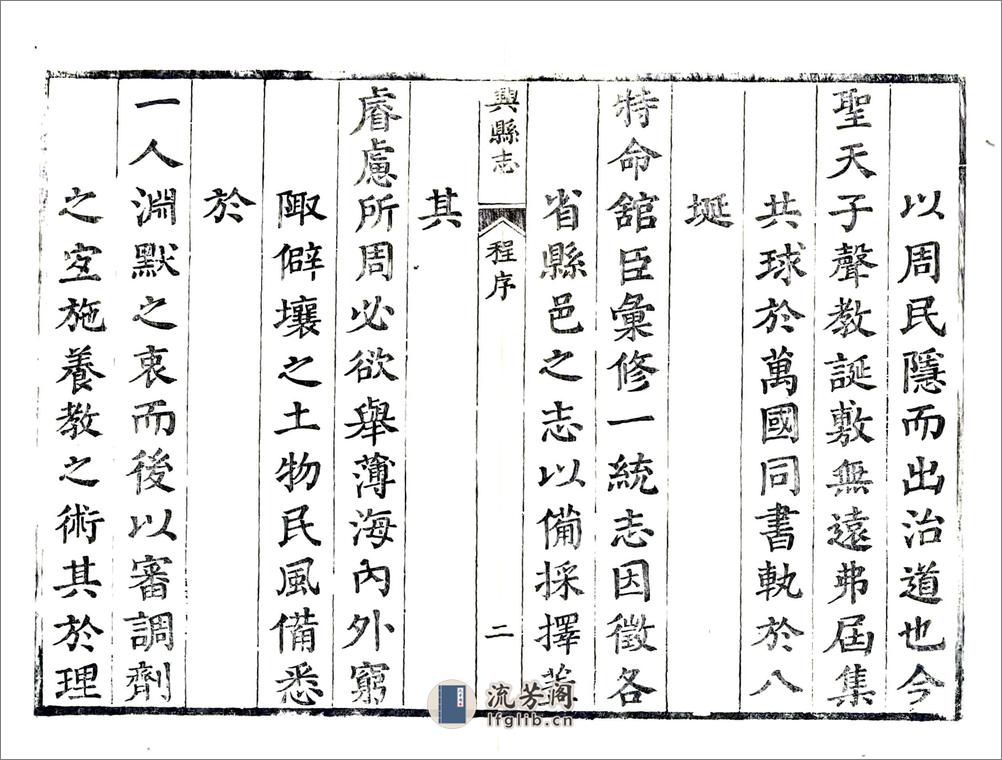 以周民隱而出治道也今
聖天子聲教誕敷無遠弗屆集
共球於萬國同書軌於八
埏
特命舘臣彙修一統志因徵各
省縣邑之志以備採擇蓋
其
興縣志
程序
二
睿慮所周必欲舉薄海內外窮
陬僻壤之土物民風備悉
於
一人淵默之衷而後以審調劑
之宐施養教之術其於理
流芳阁
lfglib.cn